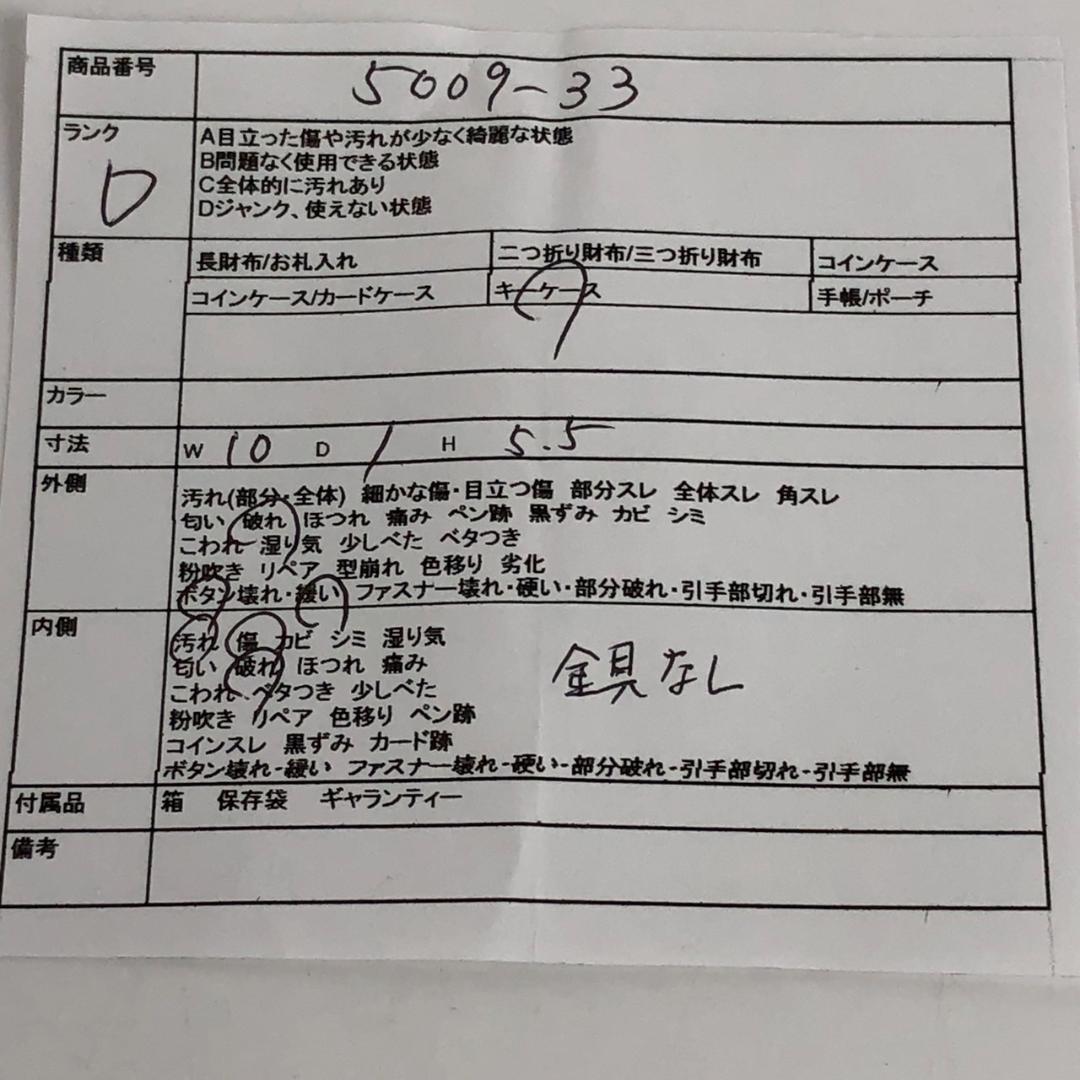 商品番号 5009-33
ランク A目立った傷や汚れが少なく綺麗な状態
B問題なく使用できる状態
D C全体的に汚れあり
Dジャンク、使えない状態
種類 長財布/お札入れ 二つ折り財布/三つ折り財布 コインケース
コインケース/カードケース キーケース 手帳/ポーチ
カラー
寸法 W 10 D 1 H 5.5
外側 汚れ(部分・全体) 細かな傷・目立つ傷 部分スレ 全体スレ 角スレ
匂い 破れ ほつれ 痛み ペン跡 黒ずみ カビ シミ
こわれ 湿り気 少しべた ベタつき
粉吹き リペア 型崩れ 色移り 劣化
ボタン壊れ・緩い ファスナー壊れ・硬い・部分破れ・引手部切れ・引手部無
内側 汚れ 傷 カビ シミ 湿り気
匂い 破れ ほつれ 痛み 金具なし
こわれ ベタつき 少しべた
粉吹き リペア 色移り ペン跡
コインスレ 黒ずみ カード跡
ボタン壊れ-緩い ファスナー壊れ-硬い-部分破れ-引手部切れ-引手部無
付属品 箱 保存袋 ギャランティー
備考